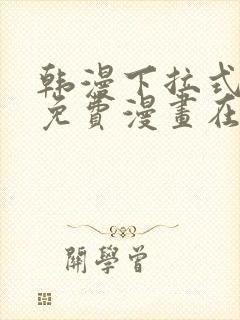 韩漫下拉式
免費漫畫在
開學曾